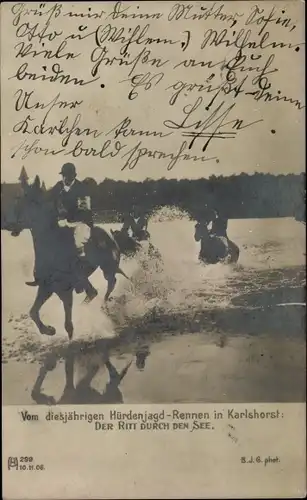 Grüß mir Deine Mutter Sofie,
Otto u (Wilhlem.) Wilhelm.
Viele Grüße an Euch
beiden Es grüßt Deine
Unser Lisse
Karlchen kann
schon bald sprechen.
Vom diesjährigen Hürdenjagd-Rennen in Karlshorst:
DER RITT DURCH DEN SEE.
299
10.11.06.
S.J.G. phot.